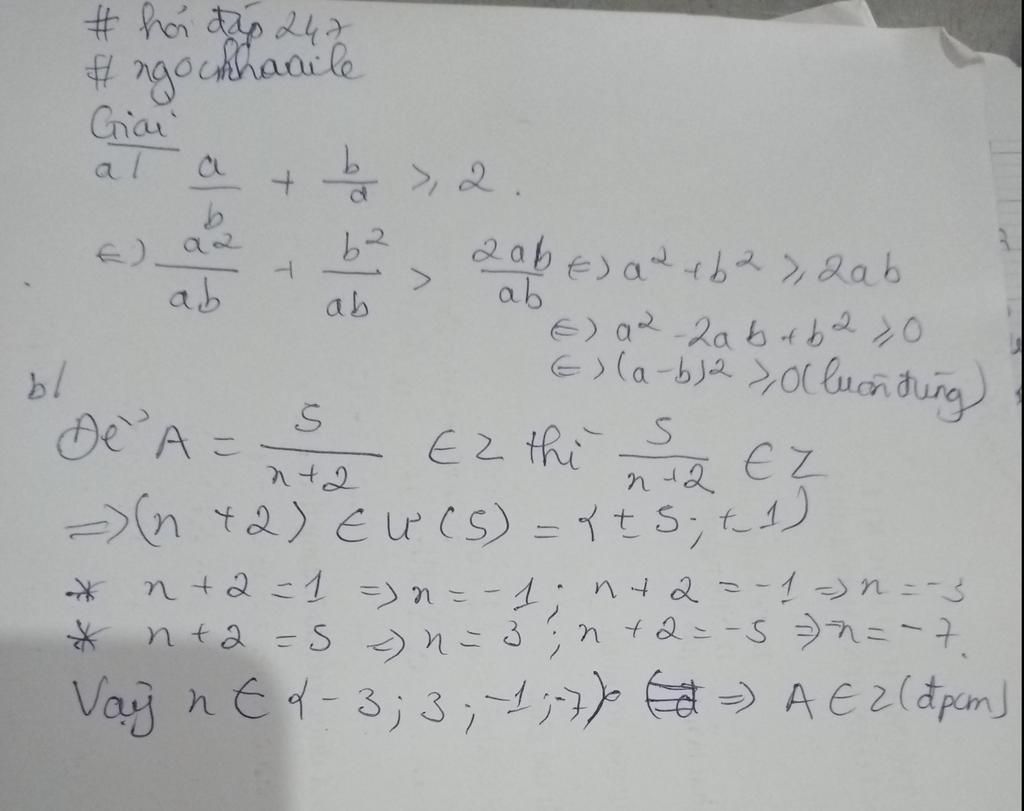 # hỏi đáp 247
# ngockhaaile
Giải
a/ a/b + b/a ≥ 2.
⇔) a2/ab + b²/ab > 2ab/ab ⇔) a² + b² ≥ 2ab
⇔) a² - 2ab + b² ≥ 0
⇔) (a-b)2 ≥ 0 (luôn đúng)
b/
Để A = 5/(n+2) ∈ Z thì 5/(n+2) ∈ Z
=> (n + 2) ∈ Ư (5) = {± 5; ± 1}
* n + 2 = 1 => n = -1; n + 2 = -1 => n = -3
* n + 2 = 5 => n = 3; n + 2 = -5 => n = -7.
Vậy n ∈ {-3; 3; -1; -7} => A ∈ Z (đpcm)